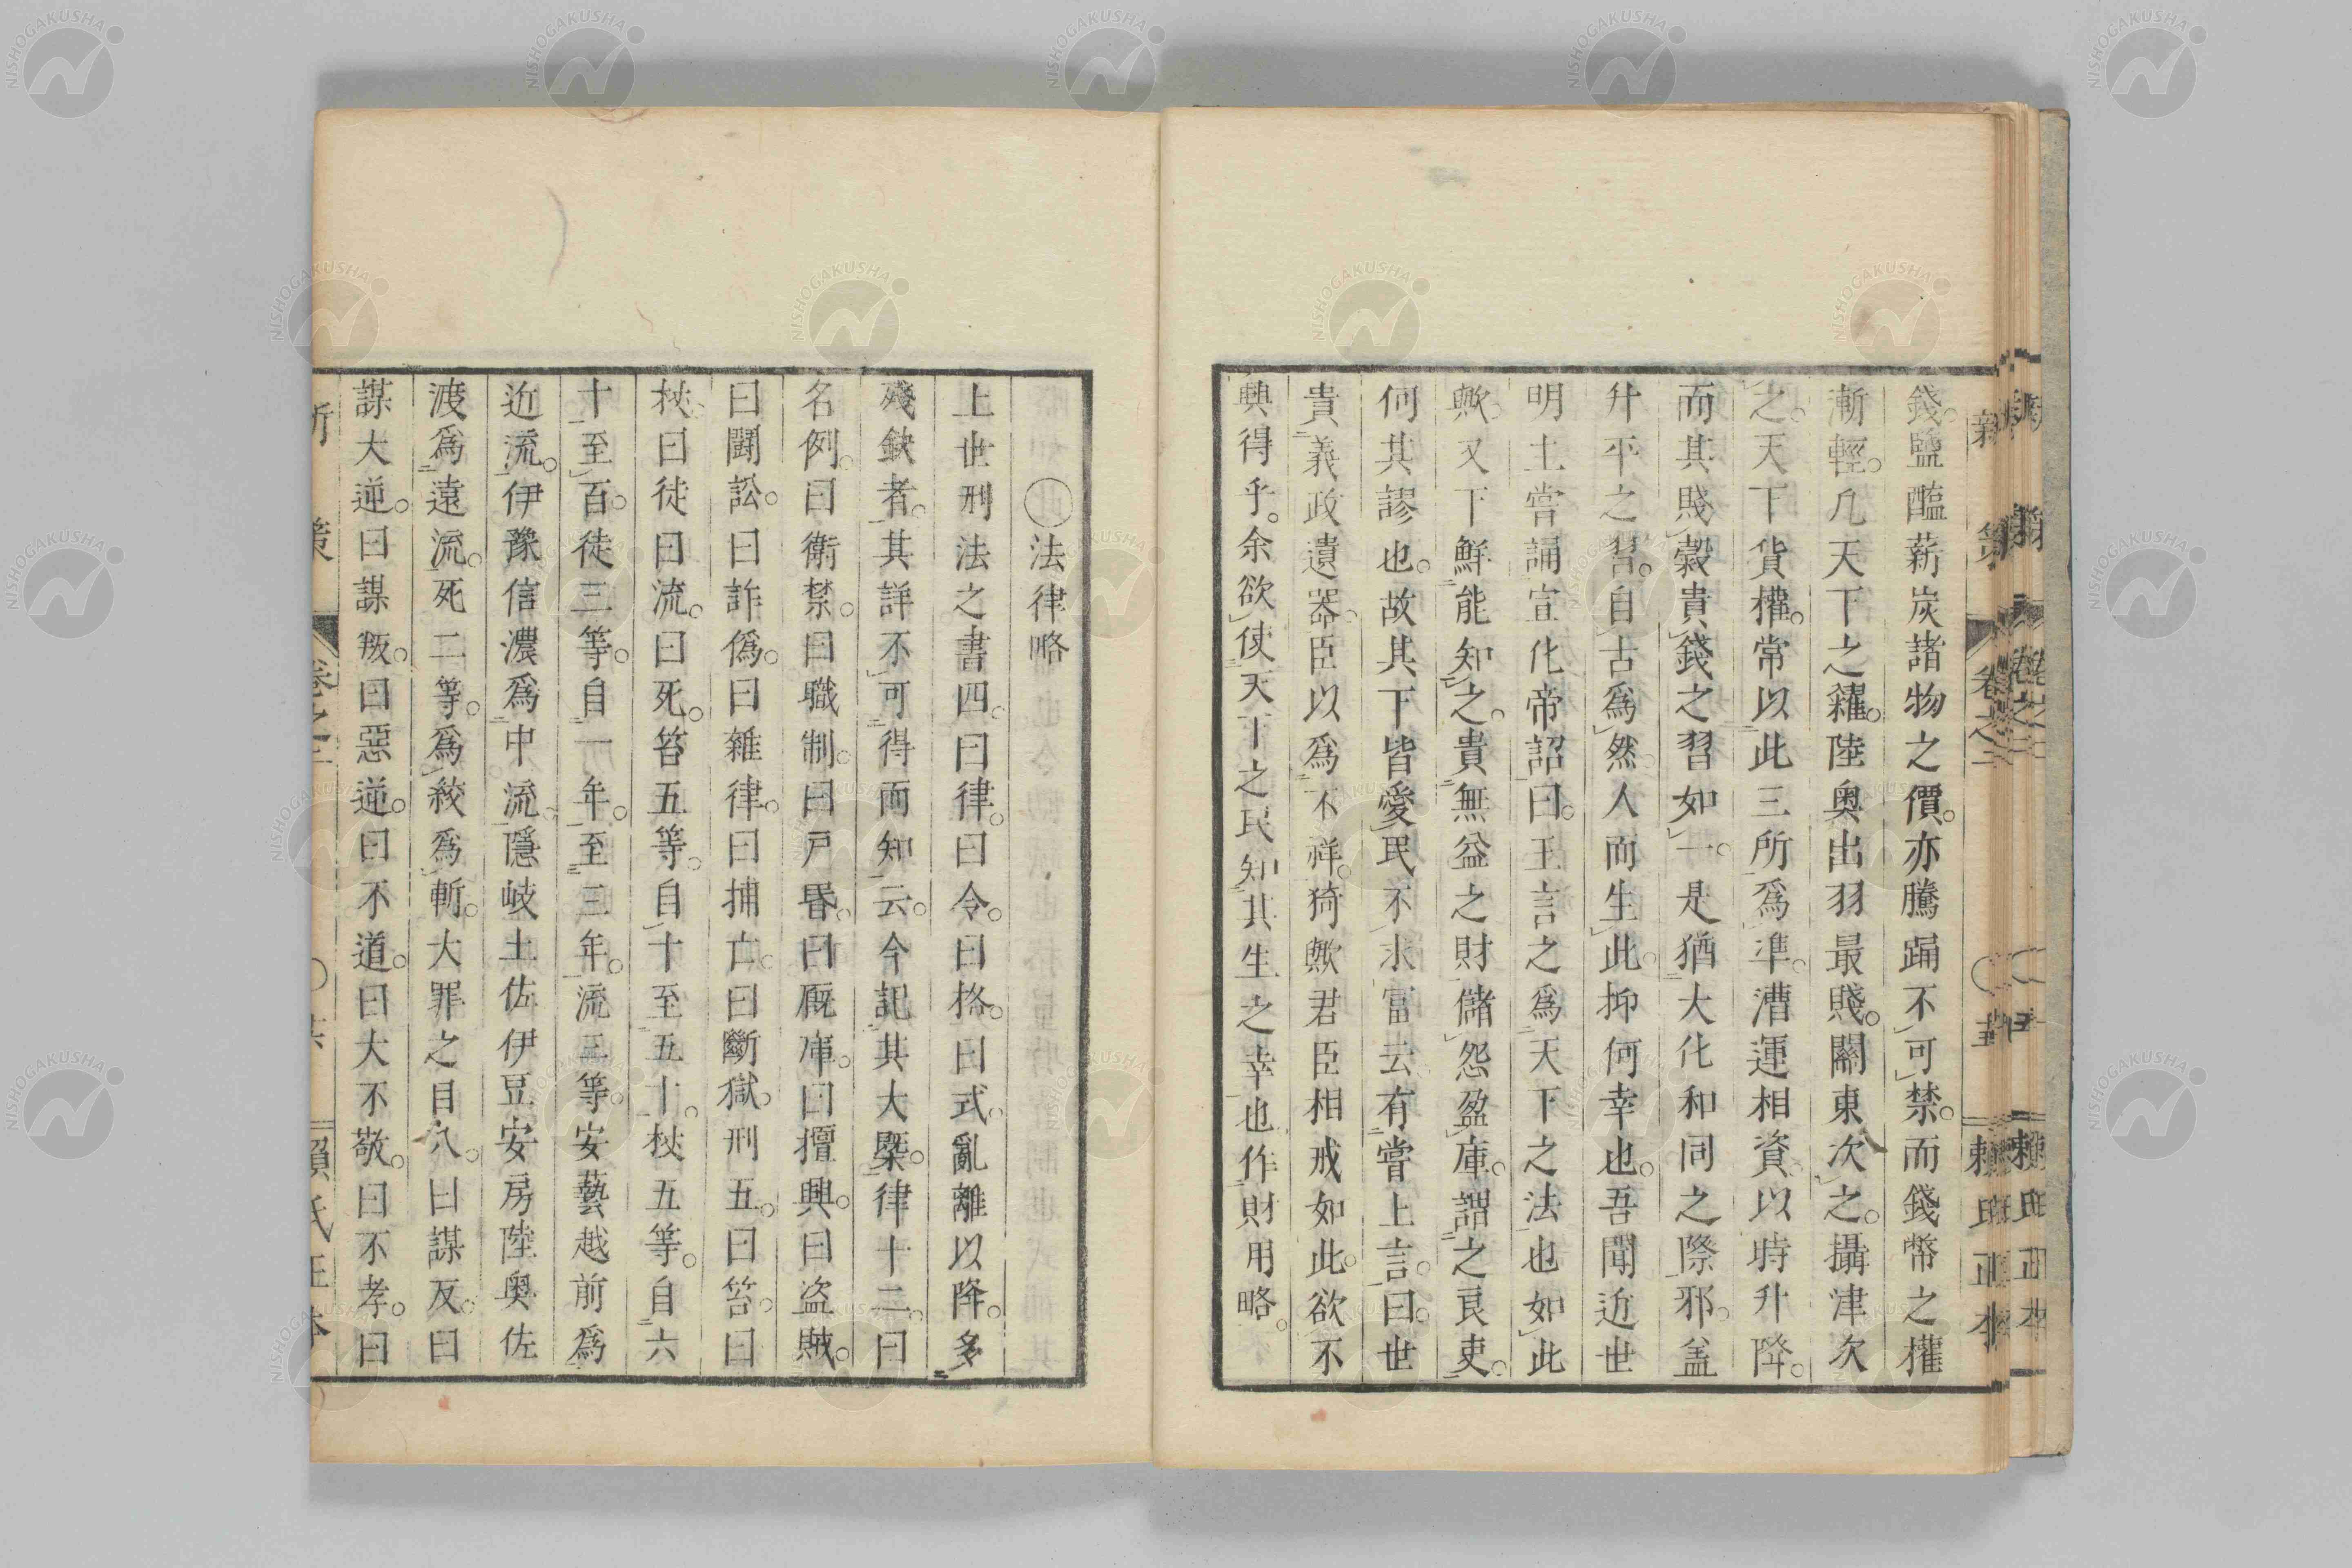 錢。鹽醢薪炭諸物之價。亦騰踊不可禁。而錢幣之權
漸輕。凡天下之糴。陸奥出羽最賤。關東次之。攝津次
之。天下貨權。常以此三所爲準。漕運相資。以時升降。
而其賤穀貴錢之習如一。是猶大化和同之際邪。盖
升平之習。自古爲然。人而生此。抑何幸也。吾聞近世
明主嘗誦宣化帝詔曰。王言之爲天下之法也如此
歟。又下鮮能知之。貴無益之財。儲怨盈庫。謂之良吏。
何其謬也。故其下皆愛民。不求富云。有嘗上言。曰。世
貴義政遺器。臣以爲不祥。猗歟君臣相戒如此。欲不
興得乎。余欲使天下之民知其生之幸也。作財用略。
新策
卷之二
賴氏正本
○法律略
上世刑法之書四。曰律。曰令。曰格。曰式。亂離以降。多
殘缺者。其詳不可得而知云。今記其大槩。律十二。曰
名例。曰衛禁。曰職制。曰戸昬。曰廐庫。曰擅興。曰盗賊。
曰鬪訟。曰詐僞。曰雜律。曰捕亡。曰斷獄。刑五。曰笞。曰
杖。曰徒。曰流。曰死。笞五等。自十至五十。杖五等。自六
十至百。徒三等。自一年。至三年。流三等。安藝越前爲
近流。伊豫信濃爲中流。隱岐土佐伊豆安房陸奥佐
渡爲遠流。死二等。爲絞爲斬。大罪之目八。曰謀反。曰
謀大逆。曰謀叛。曰惡逆。曰不道。曰大不敬。曰不孝。曰